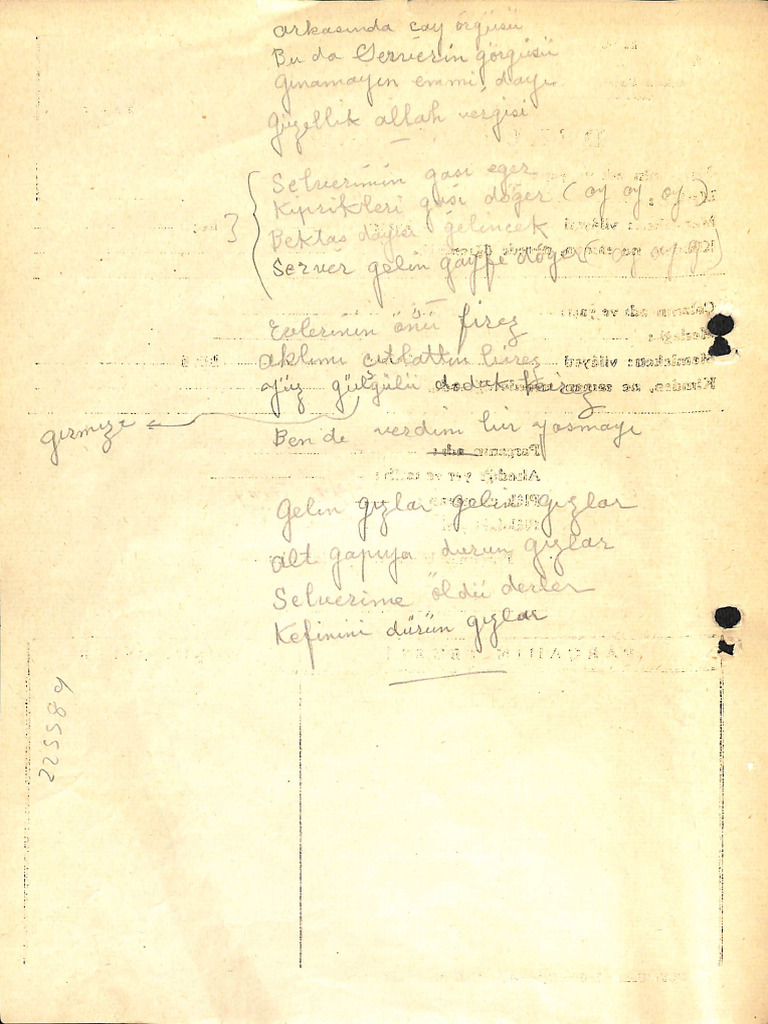 arkasında çay örgüsü
Bu da Serverin görgüsü
Gınamayın emmi, dayı
Güzellik allah vergisi
Selverimin gaşı eğer
Kiprikleri gaşı döğer (oy oy oy)
Bektaş dayısı gelincek
3
Server gelin gayfe döğer (oy oy oy)
Evlerinin önü firez
aklımı çıtlattın biraz
Yüz gülgülü dudak kirez
gırmızı
Ben de verdim bir yosmayı
Gelin gızlar gelin gızlar
alt gapıya durun gızlar
Selverime öldü derler
Kefinini dürün gızlar
225589